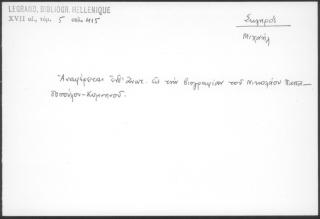 LEGRAND, BIBLIOGR. HELLENIQUE
XVII αἰ, τόμ. 5 σελ. 415
Σκληρός
Μιχαήλ
Ἀναφέρεται εἰς τὴν βιογραφίαν τοῦ Νικολάου Παπα-
δοπούλου-Κομνηνοῦ.